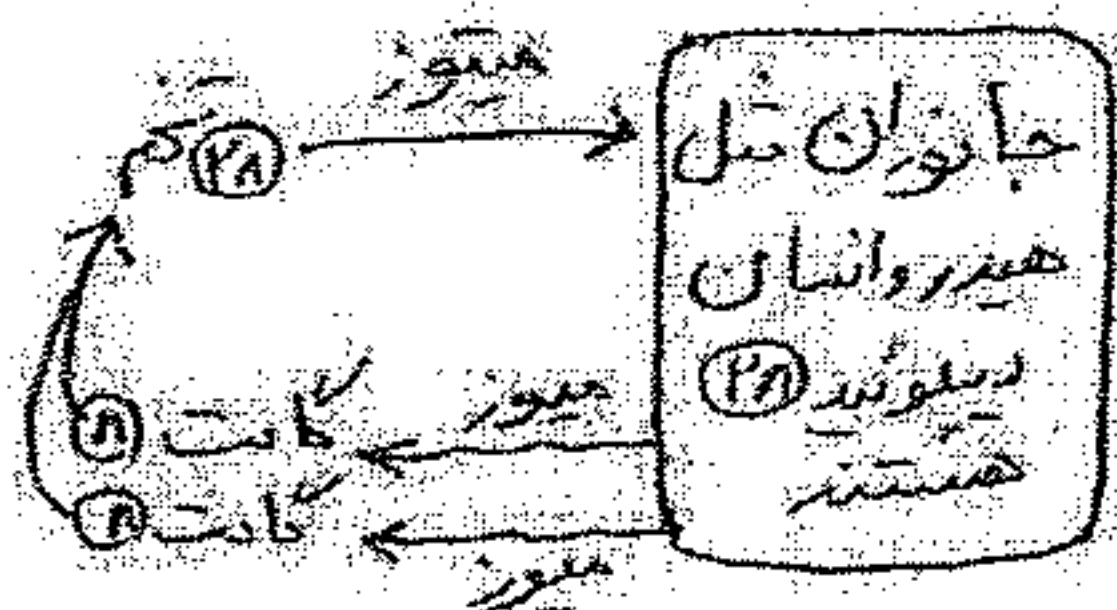 جانوران مثل
هیدر و انسان
دیپلوئید ۲n
هستند
میتوز
تخم ۲n
میوز
گامت n
گامت n
میوز